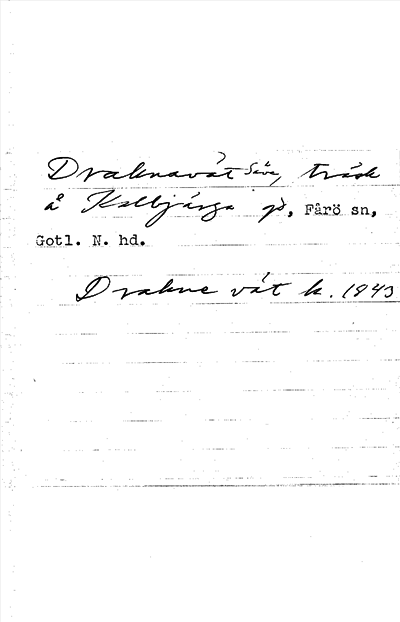 Draknavät Säve, träsk
å Kalbjärga gd, Fårö sn,
Gotl. N. hd.
Drakne vät k. 1843